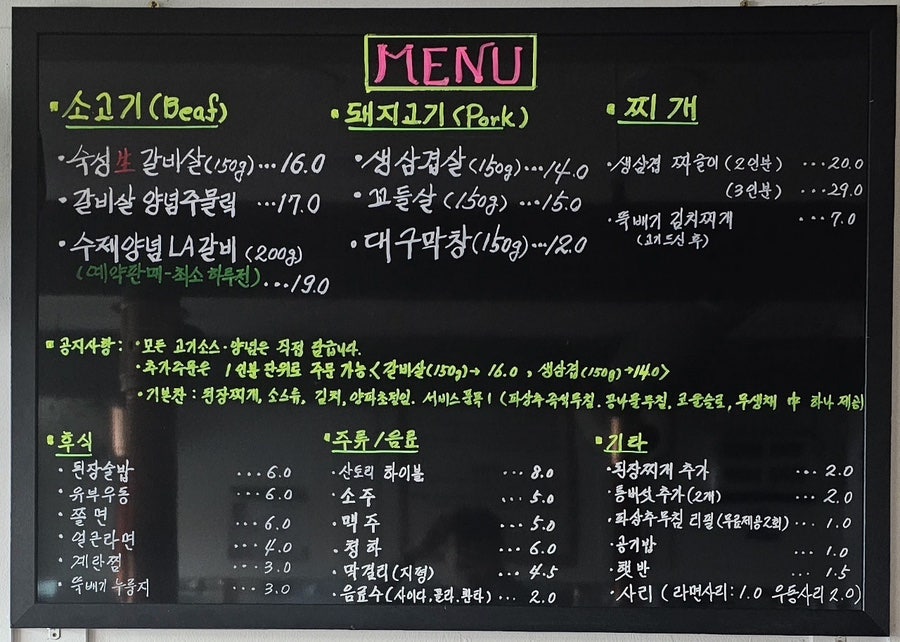 MENU
소고기(Beaf)
· 숙성 生 갈비살(150g)...16.0
· 갈비살 양념주물럭 ...17.0
· 수제양념 LA갈비 (200g)
(예약판매-최소 하루전) ...19.0
돼지고기(Pork)
· 생삼겹살(150g)...14.0
· 꼬들살(150g) ...15.0
· 대구막창(150g)...12.0
찌개
· 생삼겹 짜글이(2인분) ...20.0
(3인분) ...29.0
· 뚝배기 김치찌개 ...7.0
(고기드신 후)
공지사항: · 모든 고기소스·양념은 직접 담습니다.
· 추가주문은 1인분 단위로 주문 가능<갈비살(150g)→ 16.0, 생삼겹(150g)→14.0>
· 기본찬: 된장찌개, 소스류, 김치, 양파초절임. 서비스품목1(파상추 무침. 콩나물무침, 코울슬로, 무생채 中 하나 제공)
후식
· 된장술밥 ...6.0
· 유부우동 ...6.0
· 쫄면 ...6.0
· 얼큰라면 ...4.0
· 계란찜 ...3.0
· 뚝배기 누룽지 ...3.0
주류/음료
· 산토리 하이볼 ...8.0
· 소주 ...5.0
· 맥주 ...5.0
· 청하 ...6.0
· 막걸리(지평) ...4.5
· 음료수(사이다.콜라.환타) ...2.0
기타
· 된장찌개 추가 ...2.0
· 통버섯 추가(2개) ...2.0
· 파상추무침 리필(무료제공2회) ...1.0
· 공기밥 ...1.0
· 햇반 ...1.5
· 사리 (라면사리:1.0 우동사리 2.0)